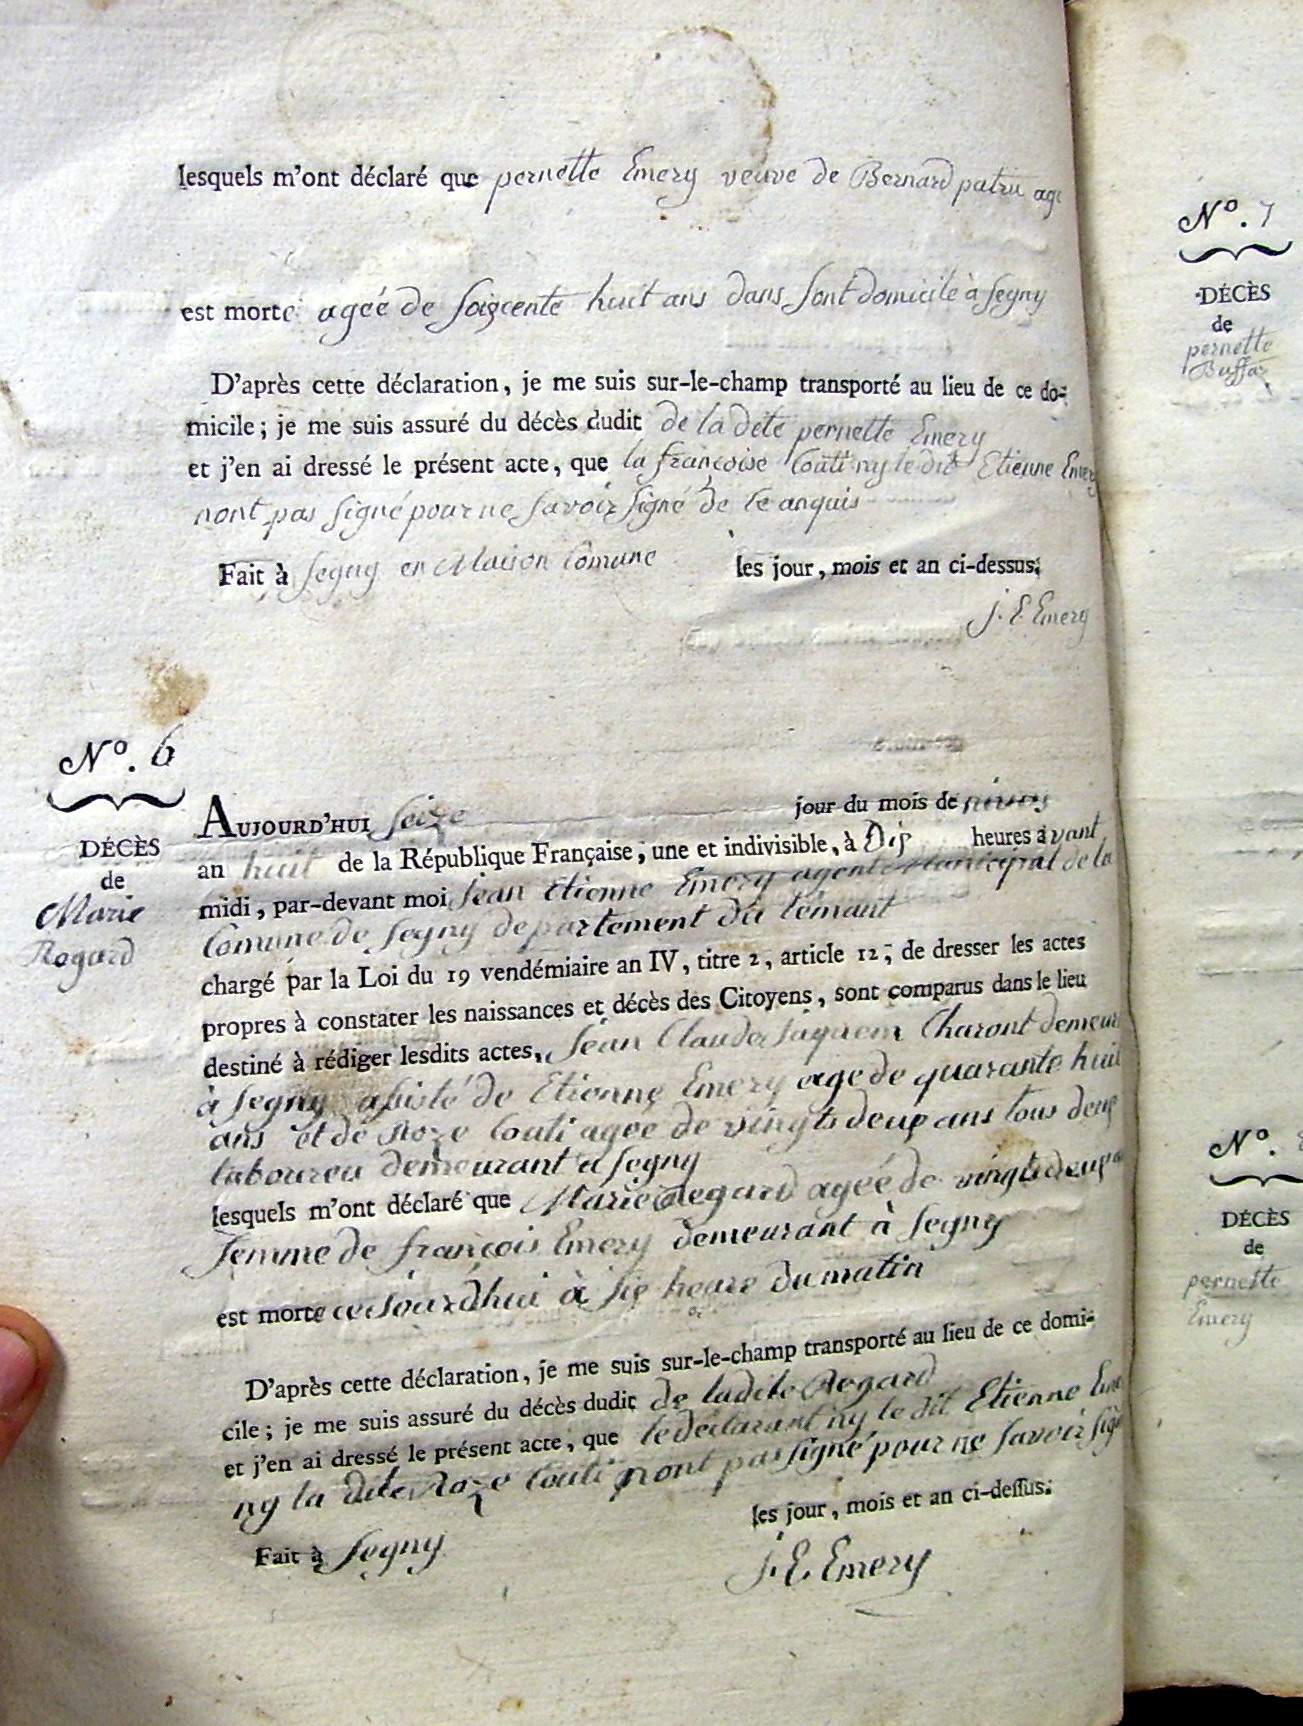 lesquels m'ont déclaré que pernette Emery veuve de Bernard patru agé
est morte agée de soixcente huit ans dans sont domicile à segny
D'après cette déclaration, je me suis sur-le-champ transporté au lieu de ce do-
micile; je me suis assuré du décès dudit de la déte pernette Emery
et j'en ai dressé le présent acte, que la françoise Couti ny le dit Etienne Emery
nont pas signé pour ne savoir signé de ce anquis
Fait à segny en Maison Comune les jour, mois et an ci-dessus;
J. E Emery
N°. 6
DÉCÈS
de
Marie
Rogard
AUJOURD'HUI seize jour du mois de nivos
an huit de la République Française, une et indivisible, à Dix heures avant
midi, par-devant moi Jean Etienne Emery agent Municipal de la
Comune de Segny departement du lémant
chargé par la Loi du 19 vendémiaire an IV, titre 2, article 12, de dresser les actes
propres à constater les naissances et décès des Citoyens, sont comparus dans le lieu
destiné à rédiger lesdits actes, Jean Claude Jaquem Charont demeur
à Segny assisté de Etienne Emery age de quarante huit
ans et de Roze Couti agee de vingts deux ans tous deux
laboureu demeurant a segny
lesquels m'ont déclaré que Marie Regard agéé de vingts deux
femme de françois Emery demeurant à Segny
est morte ce Jourd'hui à six heure du matin
D'après cette déclaration, je me suis sur-le-champ transporté au lieu de ce domi-
cile; je me suis assuré du décès dudit de ladite Rogard
et j'en ai dressé le présent acte, que le declarant ny le dit Etienne Eme
ny la dite Roze Couti nont pas signé pour ne savoir sign
Fait à Segny les jour, mois et an ci-dessus;
J. E. Emery
N°. 7
DÉCÈS
de
pernette
Buffaz
N°.
DÉCÈS
de
pernette
Emery